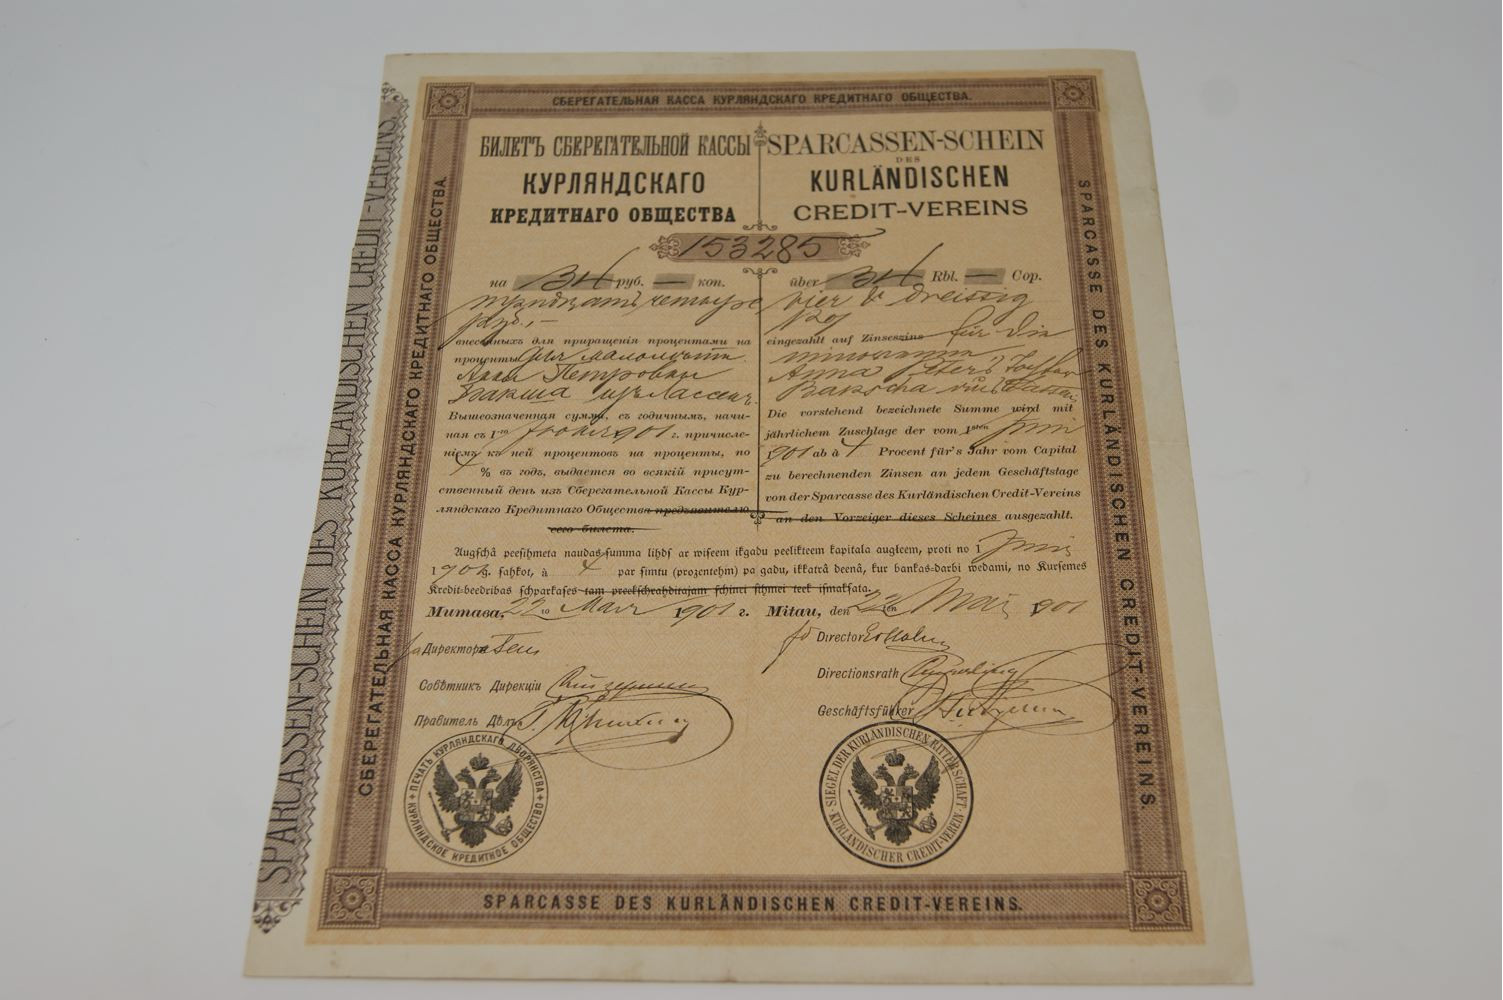 СБЕРЕГАТЕЛЬНАЯ КАССА КУРЛЯНДСКАГО КРЕДИТНАГО ОБЩЕСТВА.
БИЛЕТЪ СБЕРЕГАТЕЛЬНОЙ КАССЫ
КУРЛЯНДСКАГО
КРЕДИТНАГО ОБЩЕСТВА
SPARCASSEN-SCHEIN
DES
KURLÄNDISCHEN
CREDIT-VEREINS
153285
на 34 руб. — коп.
тридцать четыре
руб.,—
внесенныхъ для приращенія процентами на
проценты для малолѣтн.
Анны Петровны
Бакша изъ Лассенъ.
Вышеозначенная сумма, съ годичнымъ, начи-
ная съ 1-го 1901 г. причисле-
ніемъ къ ней процентовъ на проценты, по
4 % въ годъ, выдается во всякій присут-
ственный день изъ Сберегательной Кассы Кур-
ляндскаго Кредитнаго Общества предъявителю
сего билета.
über 34 Rbl. — Cop.
vier & dreissig
Rbl
eingezahlt auf Zinseszins für die
minorenne
Anna Peters Tochter
Bakscha aus
Die vorstehend bezeichnete Summe wird mit
jährlichem Zuschlage der vom 1sten Juni
1901 ab à 4 Procent für's Jahr vom Capital
zu berechnenden Zinsen an jedem Geschäftstage
von der Sparcasse des Kurländischen Credit-Vereins
an den Vorzeiger dieses Scheines ausgezahlt.
Augschâ peesihmeta naudas-summa lihds ar wiseem ikgadu peelikteem kapitala augleem, proti no 1 Juni
1901 g. sahkot, à 4 par simtu (prozentehm) pa gadu, ikkatrâ deenâ, kur bankas-darbi wedami, no Kursemes
Kredit-beedribas schparkases tam preekschrahditajam schinei sihmei teek ismaksata.
Митава, 22 го Мая 1901 г.
Mitau, den 22 ten Mai 1901
Директоръ
Совѣтникъ Дирекціи
Правитель Дѣлъ
Director
Directionsrath
Geschäftsführer
ПЕЧАТЬ КУРЛЯНДСКАГО ДВОРЯНСТВА
КУРЛЯНДСКОЕ КРЕДИТНОЕ ОБЩЕСТВО
SIEGEL DER KURLÄNDISCHEN RITTERSCHAFT
KURLÄNDISCHER CREDIT-VEREIN
SPARCASSE DES KURLÄNDISCHEN CREDIT-VEREINS.
СБЕРЕГАТЕЛЬНАЯ КАССА КУРЛЯНДСКАГО КРЕДИТНАГО ОБЩЕСТВА.
SPARCASSE DES KURLÄNDISCHEN CREDIT-VEREINS
SPARCASSEN-SCHEIN DES KURLÄNDISCHEN CREDIT-VEREINS.